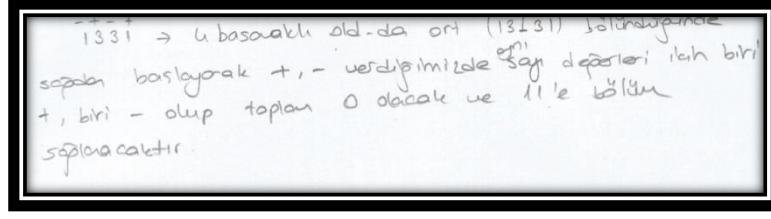 - + - +
1331 → 4 basamaklı old-da ort (13131) bölündüğünde
sağdan başlayarak +, - verdiğimizde aynı sayı değerleri için biri
+, biri - olup toplam 0 olacak ve 11'e bölüm
sağlanacaktır.